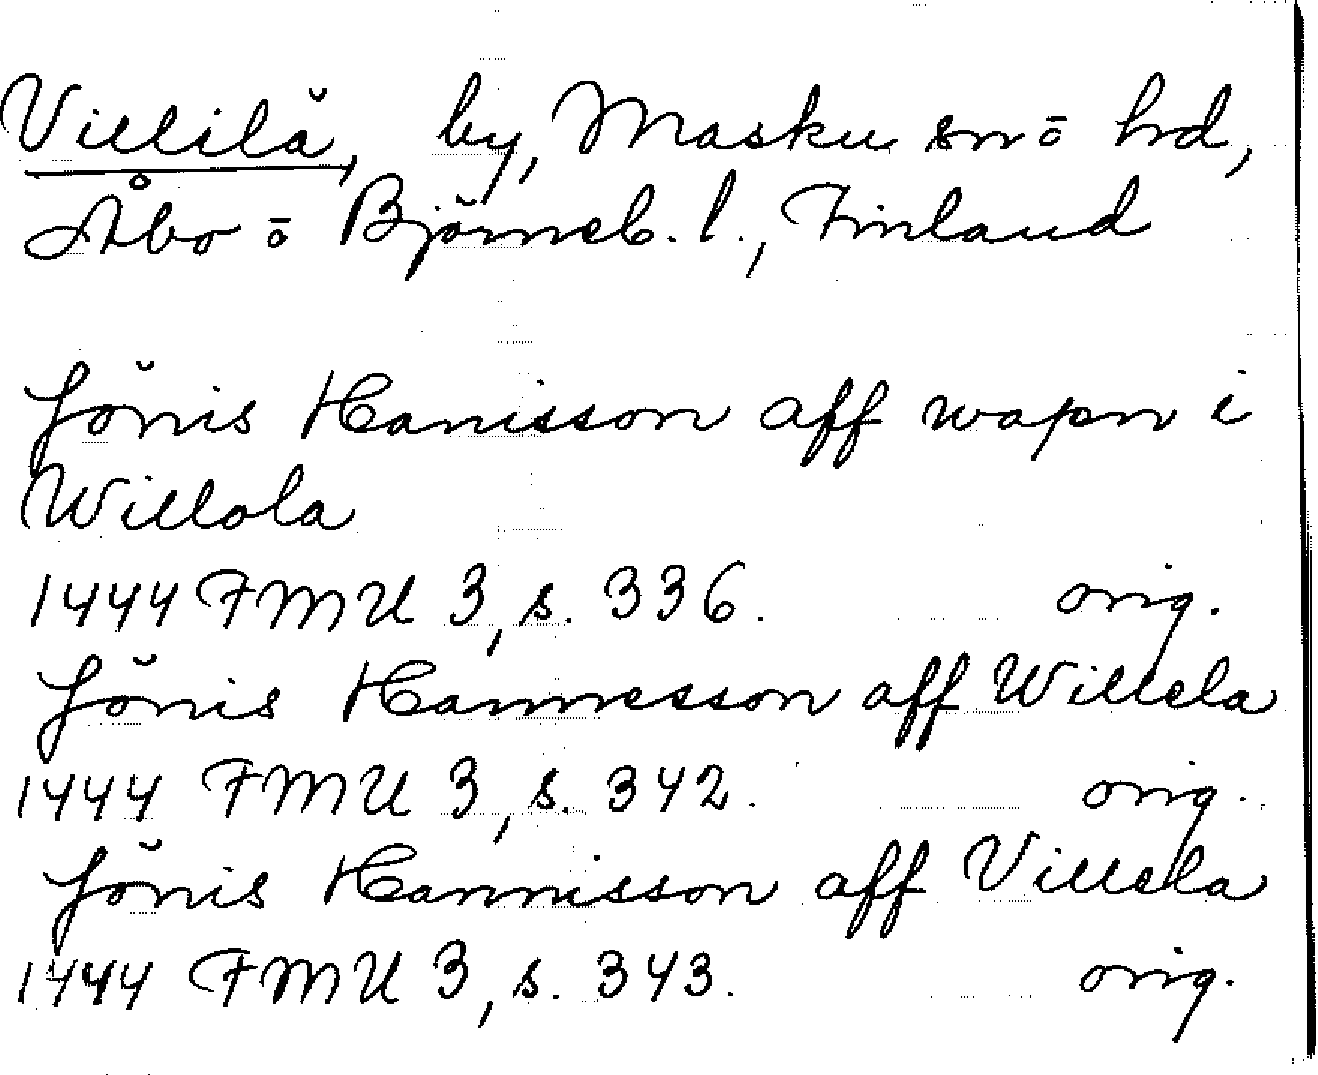 Villilä, by, Masku sn ō hd,
Åbo ō Björneb. l., Finland
Jönis Hanisson aff wapn i
Willola
1444 FMU 3, s. 336. orig.
Jönis Hannesson aff Willela
1444 FMU 3, s. 342. orig.
Jönis Hannisson aff Villela
1444 FMU 3, s. 343. orig.